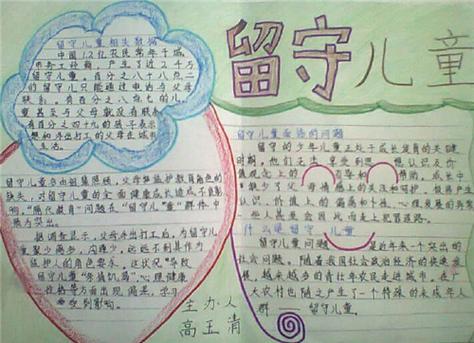 留守儿童
留守儿童相关数据
中国1.2亿农民常年在城
市务工经商,产生了近2千万
留守儿童。百分之八十八点二
的留守儿只能通过电话与父母
联系。有百分之八点七的儿
童甚至与父母就没有联系。
有百分之四十九的孩子表示
想和外出打工的父母在城市
生活。
留守儿童多由祖辈照顾,父母监护教育角色的
缺失,对留守儿童的全面健康成长造成不良影
响,"隔代教育"问题在"留守儿"童"群体中
最为突出。
据调查显示,父母外出打工后,为留守儿
童聚少离多,沟通少,远远不到其作为
监护人的角色要求。这状况"导致
留守儿童"亲情饥渴",心理健康
性格等方面出现偏差,学习
受到影响。
主办人
高玉清
留守儿童面临的问题
留守的少年儿童正处于成长发育的关键
时期,他们无法享受到
想认识及价
值观念上的
引导和
帮助,成长中
缺少了父母情感上的关注和呵护,极易产生
认识、价值上的偏离和个性、心理发展的异常
一些人甚至会因此而走上犯罪道路。
什么是留守儿童
留守儿童问题
是近年来一个突出的
社会问题。随着我国社会政治经济的快速发
展,越来越多的青壮年农民走进城市,在广
大农村也随之产生了一个特殊的未成年人
群——留守儿童。